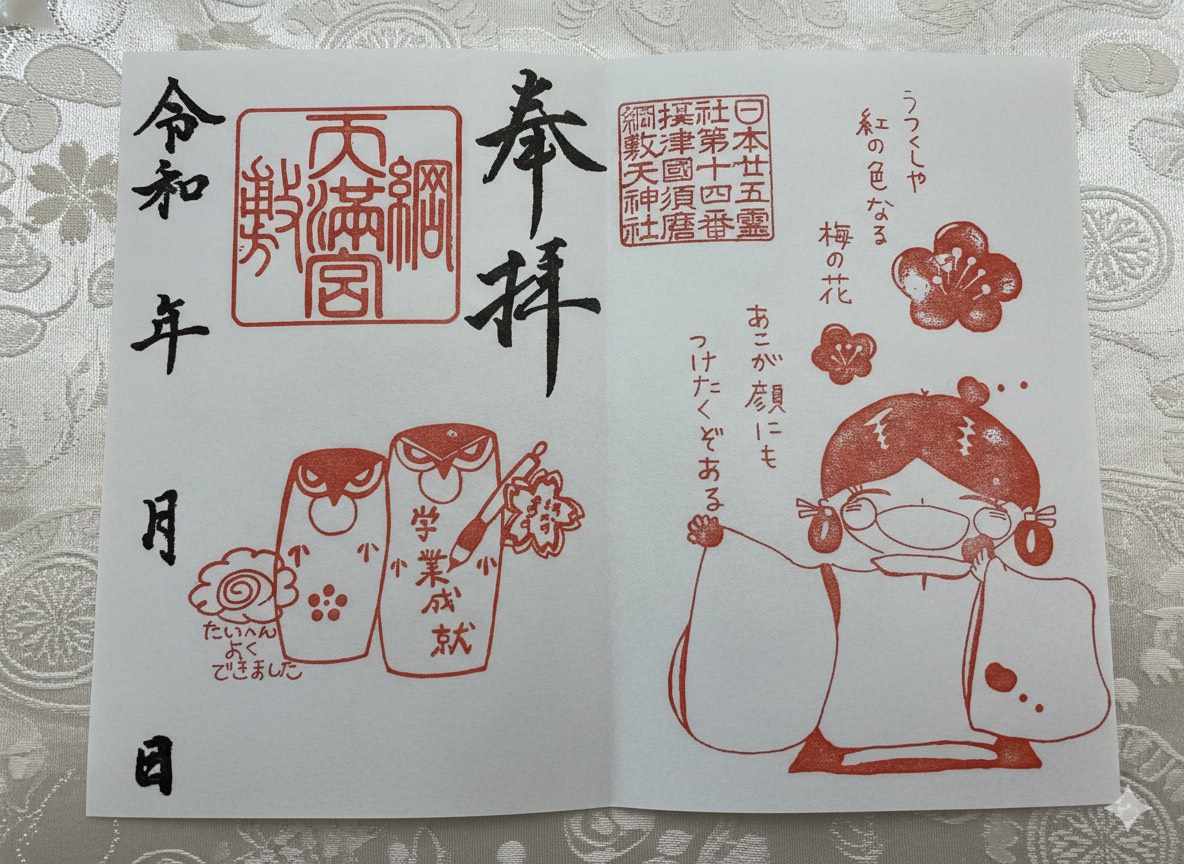 日本廿五靈
社第十四番
摂津國須磨
綱敷天神社
うつくしや
紅の色なる
梅の花
あこが顔にも
つけたくぞある
奉拝
綱
天満宮
敷
令和 年 月 日
学業成就
たいへん
よく
できました